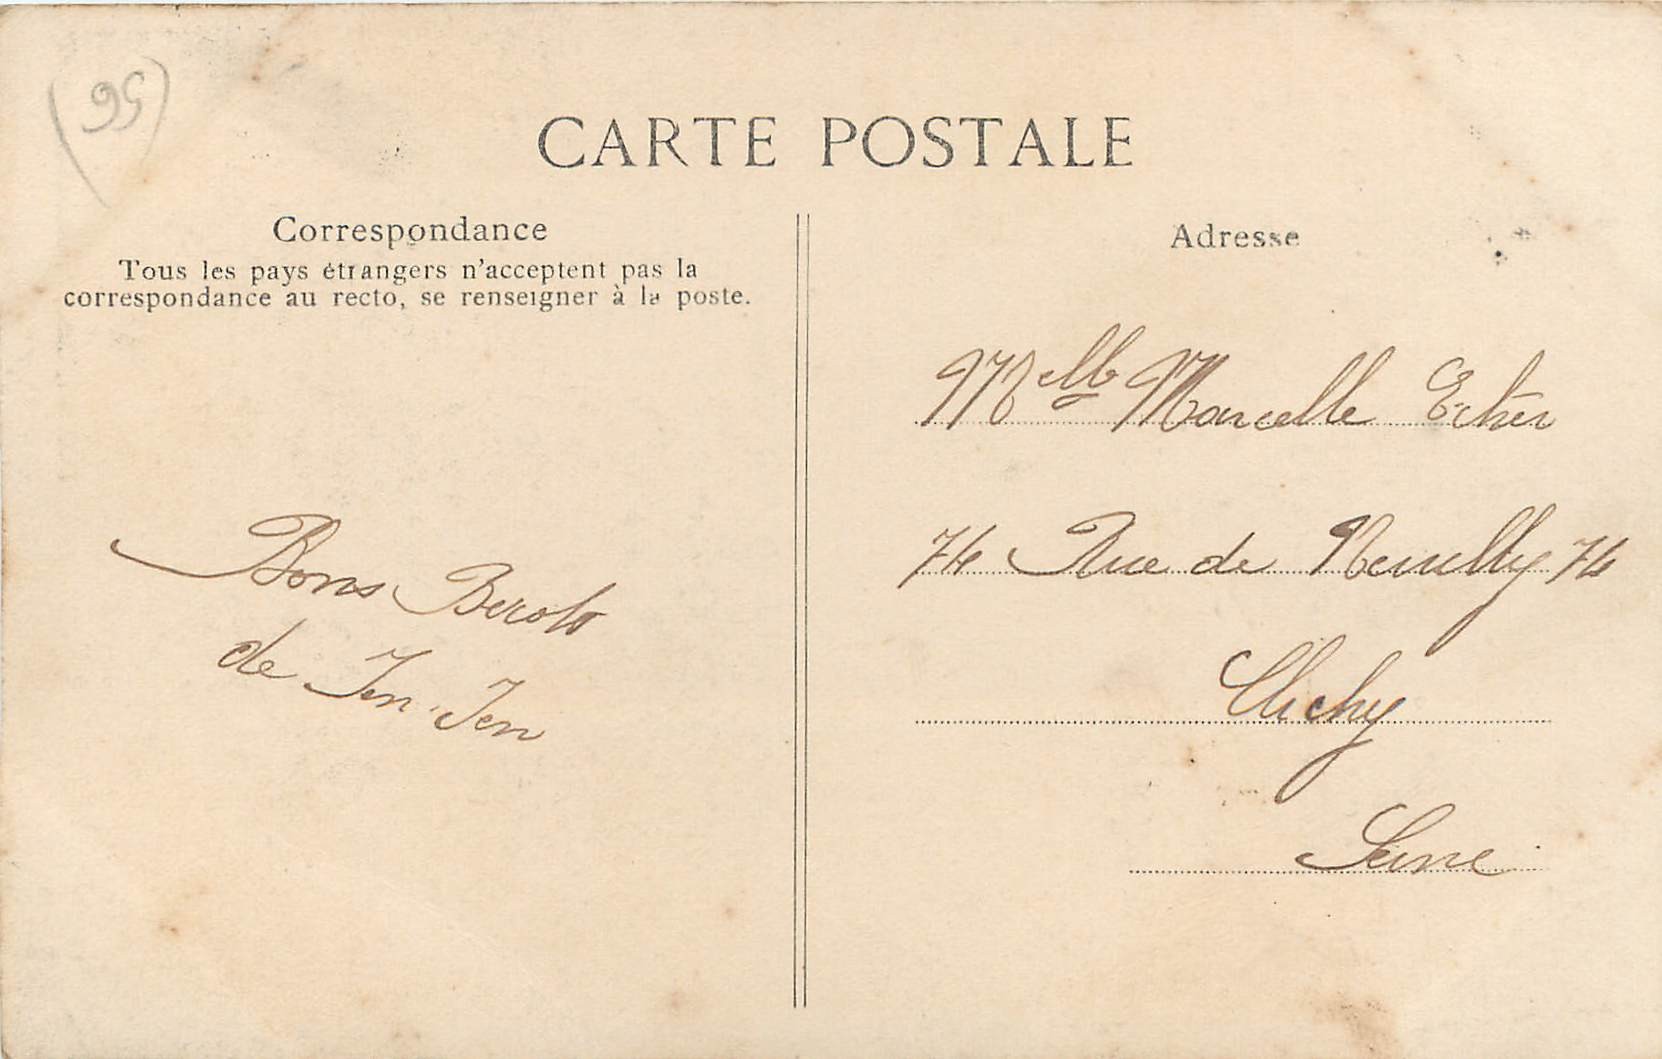 (95)
CARTE POSTALE
Correspondance
Tous les pays étrangers n'acceptent pas la
correspondance au recto, se renseigner à la poste.
Bons
de Jen-Jen
Adresse
Melle Marcelle
74 Rue de Neuilly 74
Clichy
Seine